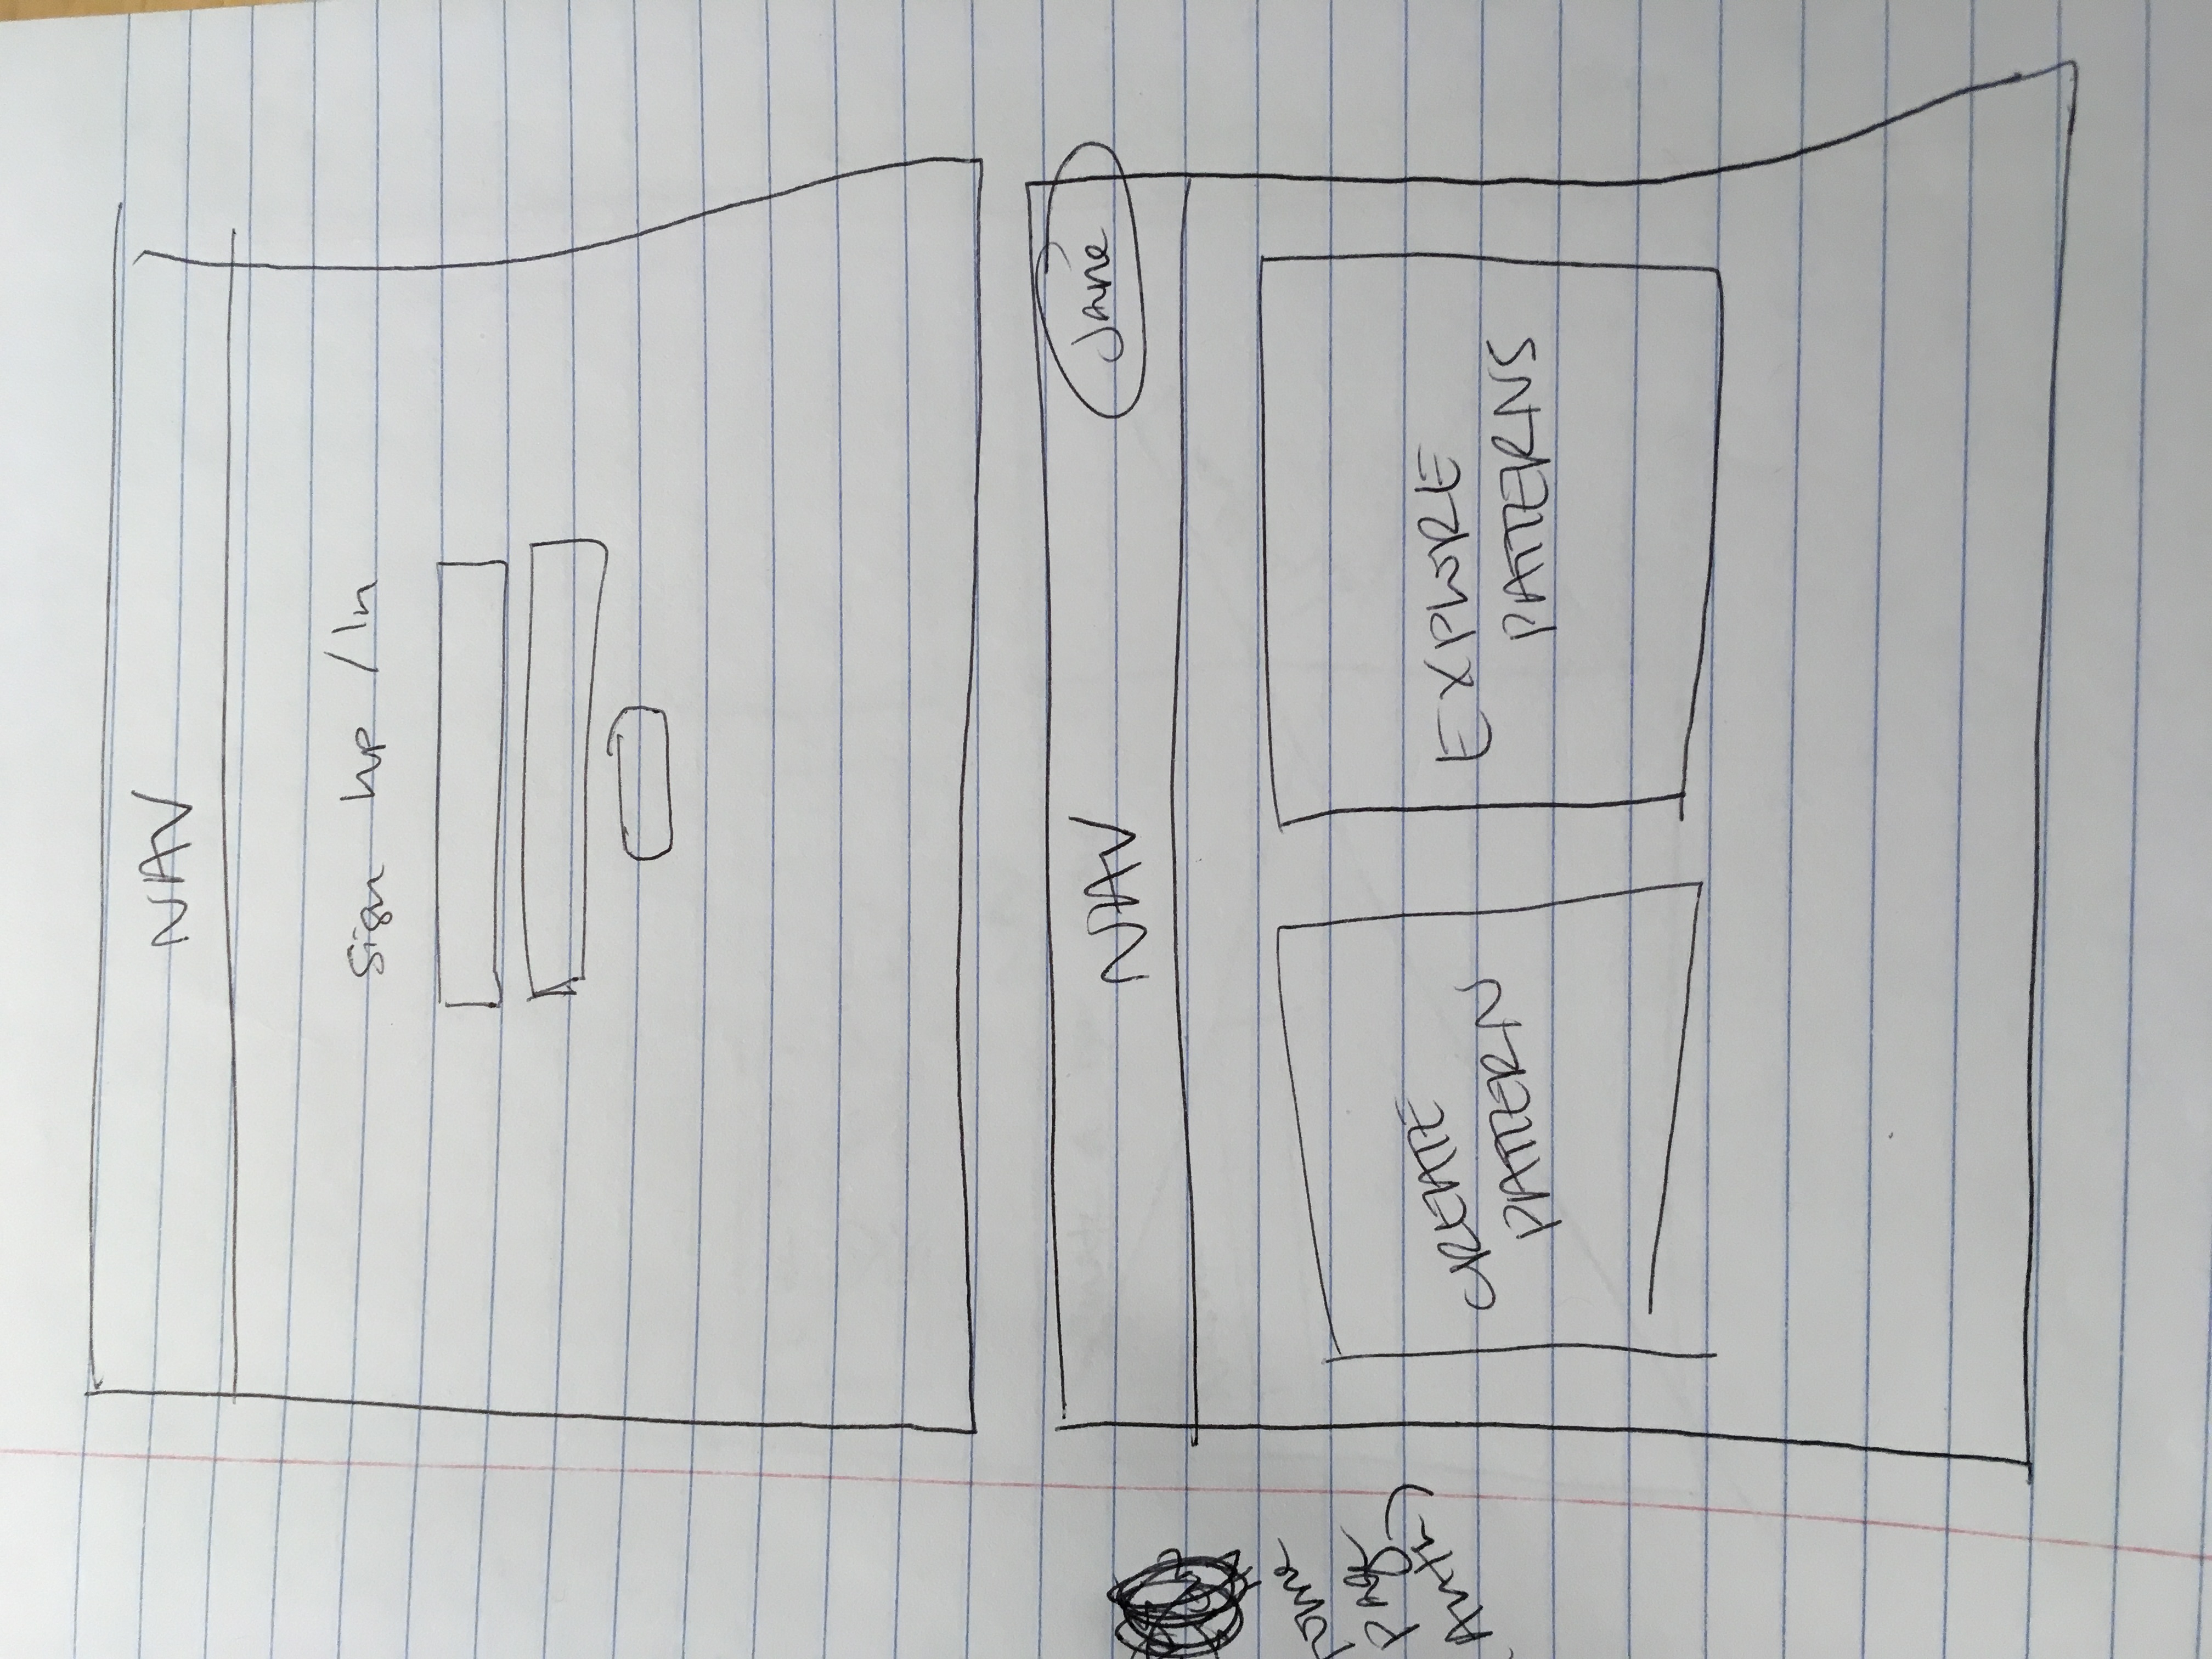 NAV
Sign up / In
NAV
Jane
Page
Auth)
CREATE
PATTERN
EXPLORE
PATTERNS